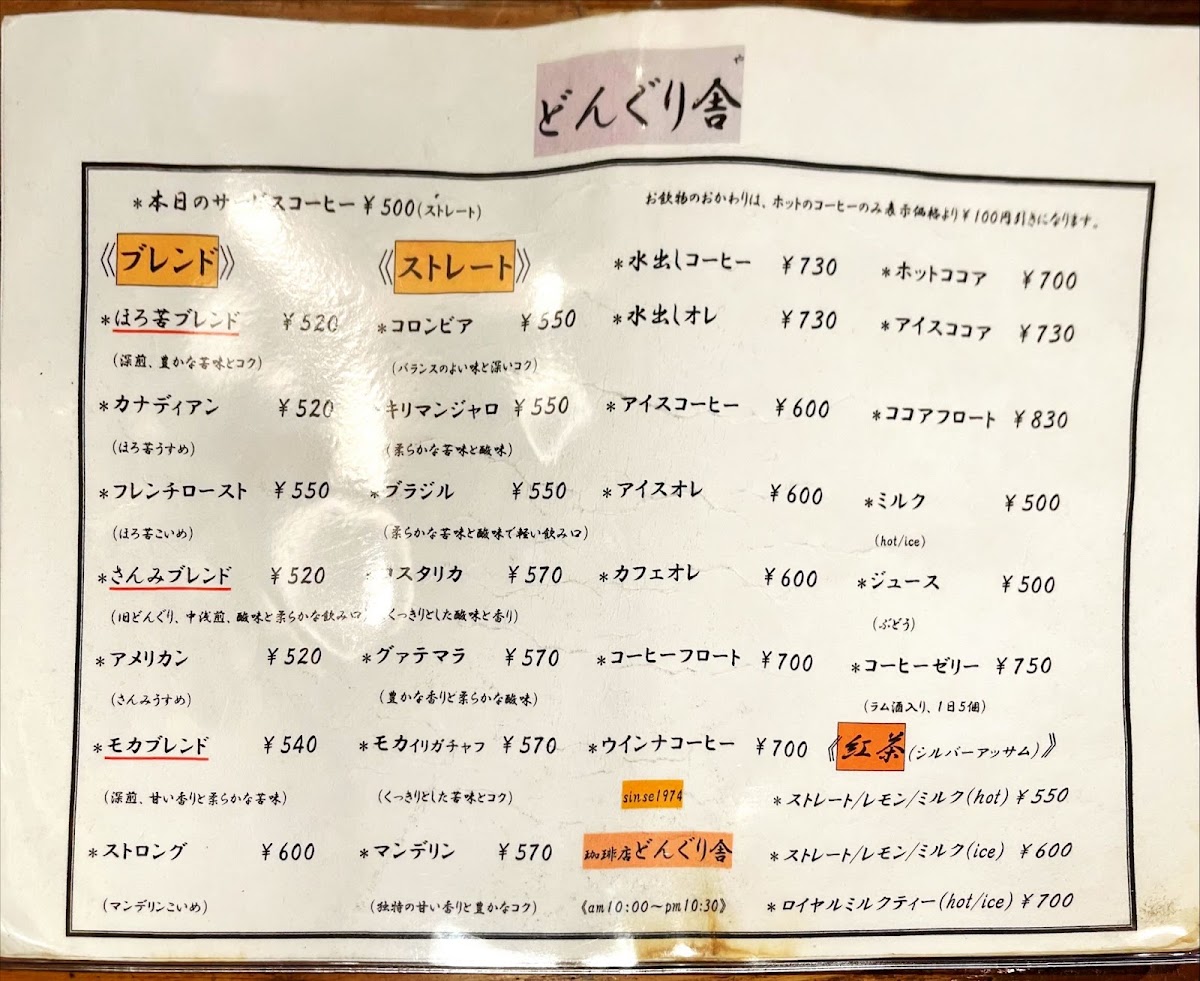 や
どんぐり舎
*本日のサービスコーヒー ¥500(ストレート)
お飲物のおかわりは、ホットのコーヒーのみ表示価格より¥100円引きになります。
《ブレンド》
*ほろ苦ブレンド ¥520
(深煎、豊かな苦味とコク)
*カナディアン ¥520
(ほろ苦うすめ)
*フレンチロースト ¥550
(ほろ苦こいめ)
*さんみブレンド ¥520
(旧どんぐり、中浅煎、酸味と柔らかな飲み口)
*アメリカン ¥520
(さんみうすめ)
*モカブレンド ¥540
(深煎、甘い香りと柔らかな苦味)
*ストロング ¥600
(マンデリンこいめ)
《ストレート》
*コロンビア ¥550
(バランスのよい味と深いコク)
*キリマンジャロ ¥550
(柔らかな苦味と酸味)
*ブラジル ¥550
(柔らかな苦味と酸味で軽い飲み口)
*コスタリカ ¥570
(くっきりとした酸味と香り)
*グァテマラ ¥570
(豊かな香りと柔らかな酸味)
*モカイリガチャフ ¥570
(くっきりとした苦味とコク)
*マンデリン ¥570
(独特の甘い香りと豊かなコク)
*水出しコーヒー ¥730
*水出しオレ ¥730
*アイスコーヒー ¥600
*アイスオレ ¥600
*カフェオレ ¥600
*コーヒーフロート ¥700
*ウインナコーヒー ¥700
sinse1974
珈琲店どんぐり舎
《am10:00〜pm10:30》
*ホットココア ¥700
*アイスココア ¥730
*ココアフロート ¥830
*ミルク ¥500
(hot/ice)
*ジュース ¥500
(ぶどう)
*コーヒーゼリー ¥750
(ラム酒入り、1日5個)
《紅茶(シルバーアッサム)》
*ストレート/レモン/ミルク(hot) ¥550
*ストレート/レモン/ミルク(ice) ¥600
*ロイヤルミルクティー(hot/ice) ¥700